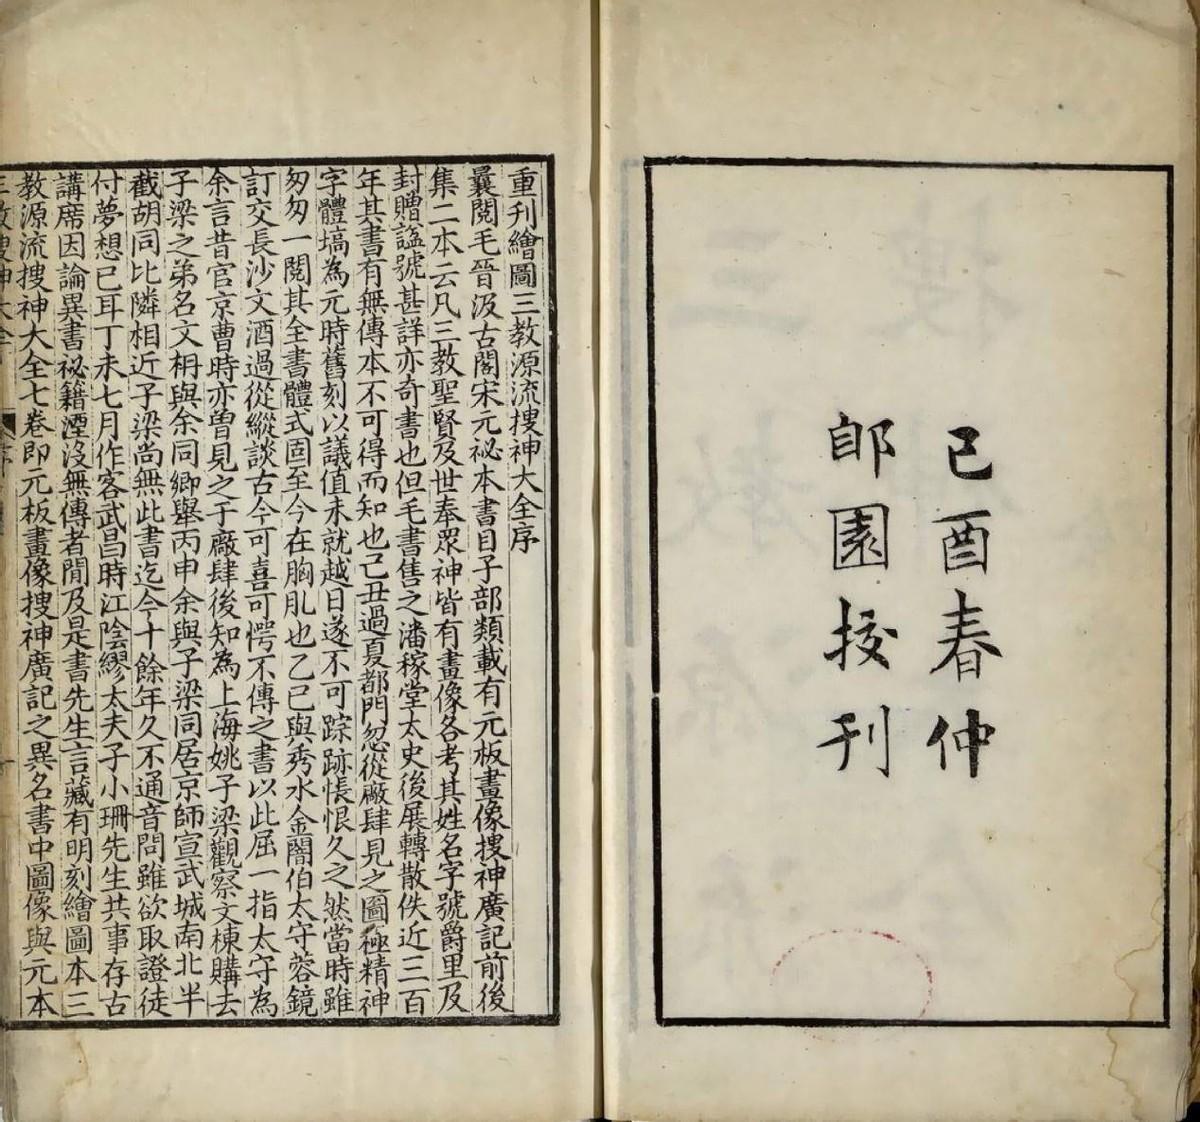 己酉春仲
郋園挍刊
重刊繪圖三教源流搜神大全序
曩閱毛晉汲古閣宋元祕本書目子部類載有元板畫像搜神廣記前後
集二本云凡三教聖賢及世奉眾神皆有畫像各考其姓名字號爵里及
封贈諡號甚詳亦奇書也但毛書售之潘稼堂太史後展轉散佚近三百
年其書有無傳本不可得而知也己丑過夏都門忽從廠肆見之圖極精神
字體塙為元時舊刻以議值未就越日遂不可踪跡悵恨久之然當時雖
匆匆一閱其全書體式固至今在胸肊也乙巳與秀水金闇伯太守蓉鏡
訂交長沙文酒過從縱談古今可喜可愕不傳之書以此屈一指太守為
余言昔官京曹時亦曾見之于廠肆後知為上海姚子梁觀察文棟購去
子梁之弟名文枏與余同鄉舉丙申余與子梁同居京師宣武城南北半
截胡同比隣相近子梁尚無此書迄今十餘年久不通音問雖欲取證徒
付夢想已耳丁未七月作客武昌時江陰繆太夫子小珊先生共事存古
講席因論異書祕籍湮沒無傳者閒及是書先生言藏有明刻繪圖本三
教源流搜神大全七卷即元板畫像搜神廣記之異名書中圖像與元本
三教搜神大全